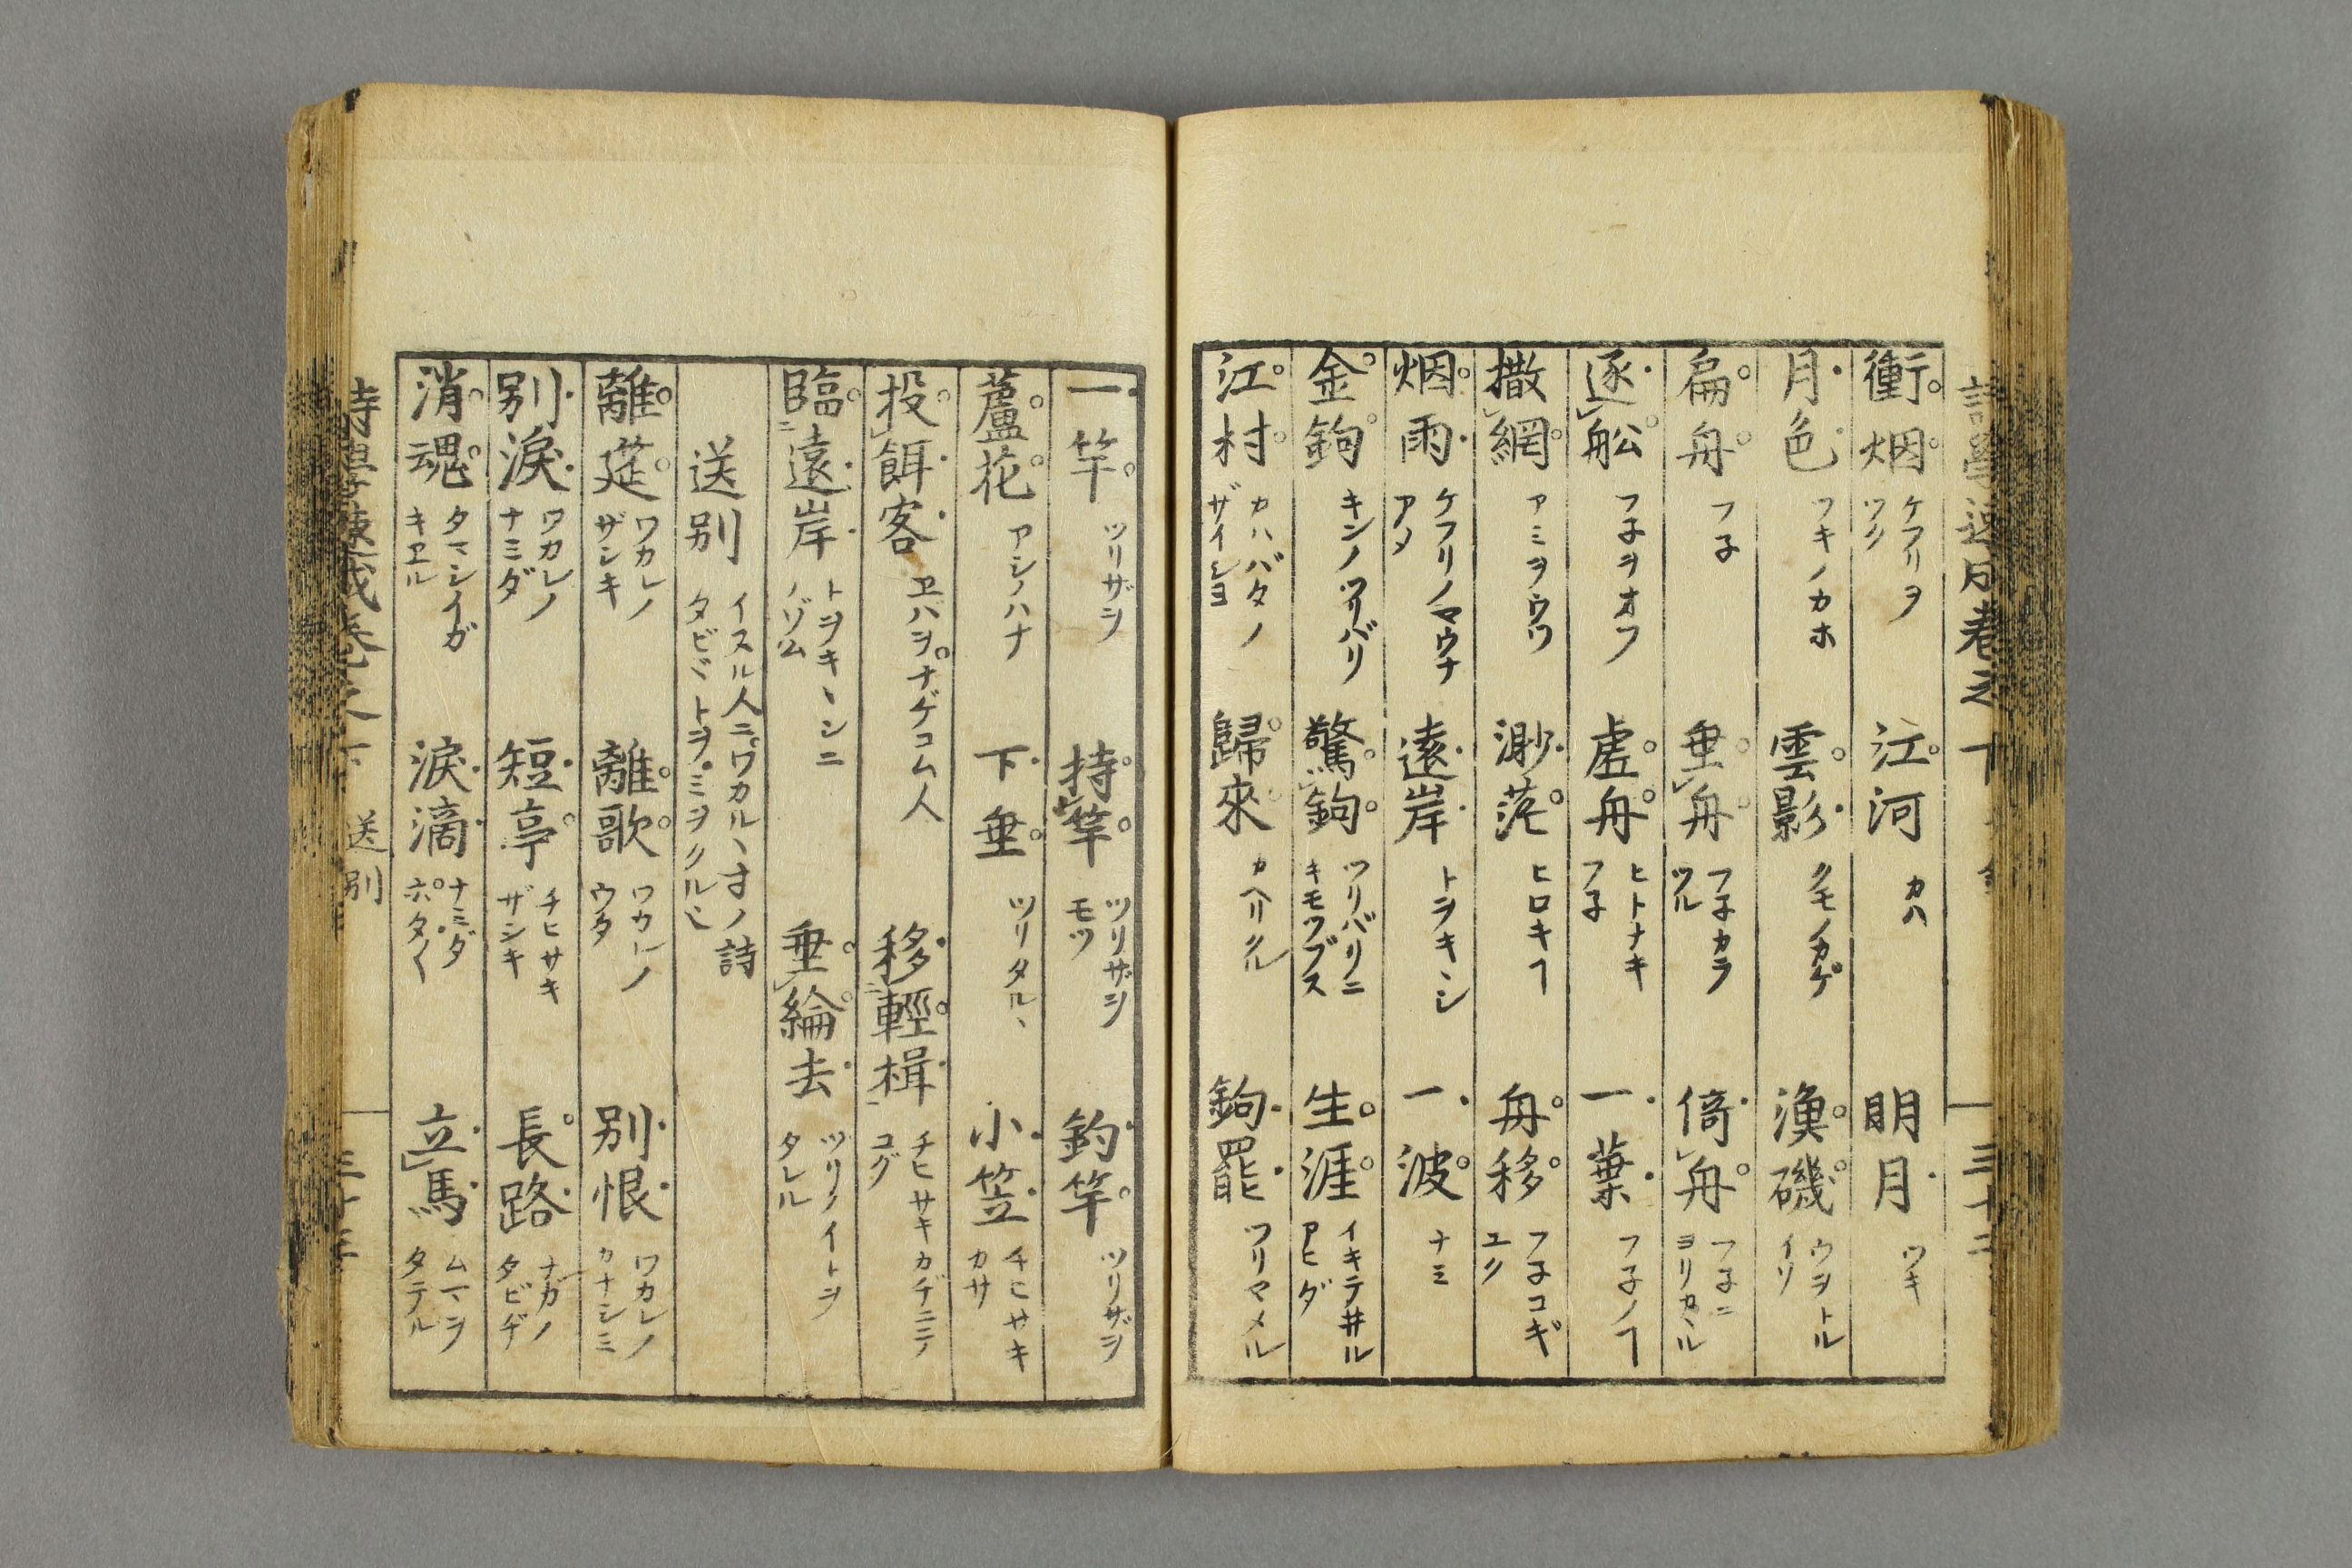 衝烟 ケフリヲ ツク 江河 カハ 明月 ツキ
月色 ツキノカホ 雲影 クモノカゲ 漁磯 ウヲトル イソ
扁舟 フ子 垂舟 フ子カラ ツル 倚舟 フ子ニ ヨリカヽル
逐舩 フ子ヲオフ 虚舟 ヒトナキ フ子 一葉 フ子ノヿ
撒網 アミヲウツ 渺茫 ヒロキヿ 舟移 フ子コギ ユク
烟雨 ケフリノヤウナ アメ 遠岸 トヲキヽシ 一波 ナミ
金鉤 キンノツリバリ 驚鉤 ツリバリニ キモツブス 生涯 イキテ井ル アヒダ
江村 カハバタノ ザイシヨ 歸來 カヘリクル 鉤罷 ツリヤメル
三十二
一竿 ツリザヲ 持竿 ツリザヲ モツ 釣竿 ツリザヲ
蘆花 アシノハナ 下垂 ツリタルヽ 小笠 チヒサキ カサ
投餌客 ヱバヲナゲコム人 移輕楫 チヒサキカヂニテ コグ
臨遠岸 トヲキヽシニ ノゾム 垂綸去 ツリノイトヲ タレル
送別 イスル人ニワカルヽ寸ノ詩 タビヾトヲミヲクル
離莚 ワカレノ ザシキ 離歌 ワカレノ ウタ 別恨 ワカレノ カナシミ
別淚 ワカレノ ナミダ 短亭 チヒサキ ザシキ 長路 ナガノ タビヂ
消魂 タマシイガ キヱル 淚滴 ナミダ ポタ〱 立馬 ムマヲ タテル
送別